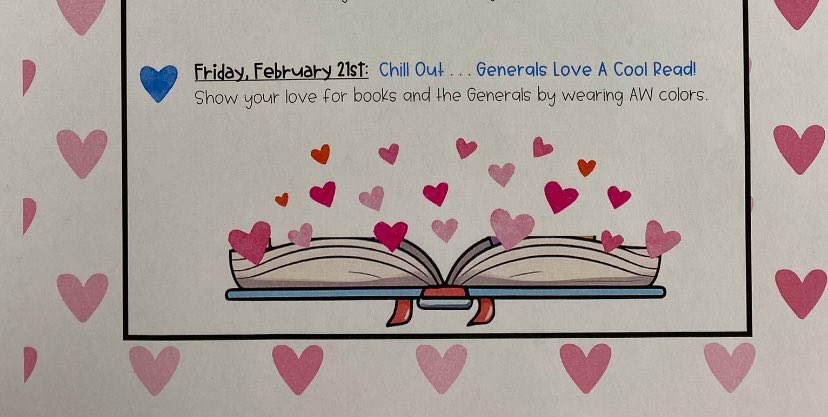 Friday, February 21st: Chill Out . . . Generals Love A Cool Read!
Show your love for books and the Generals by wearing AW colors.